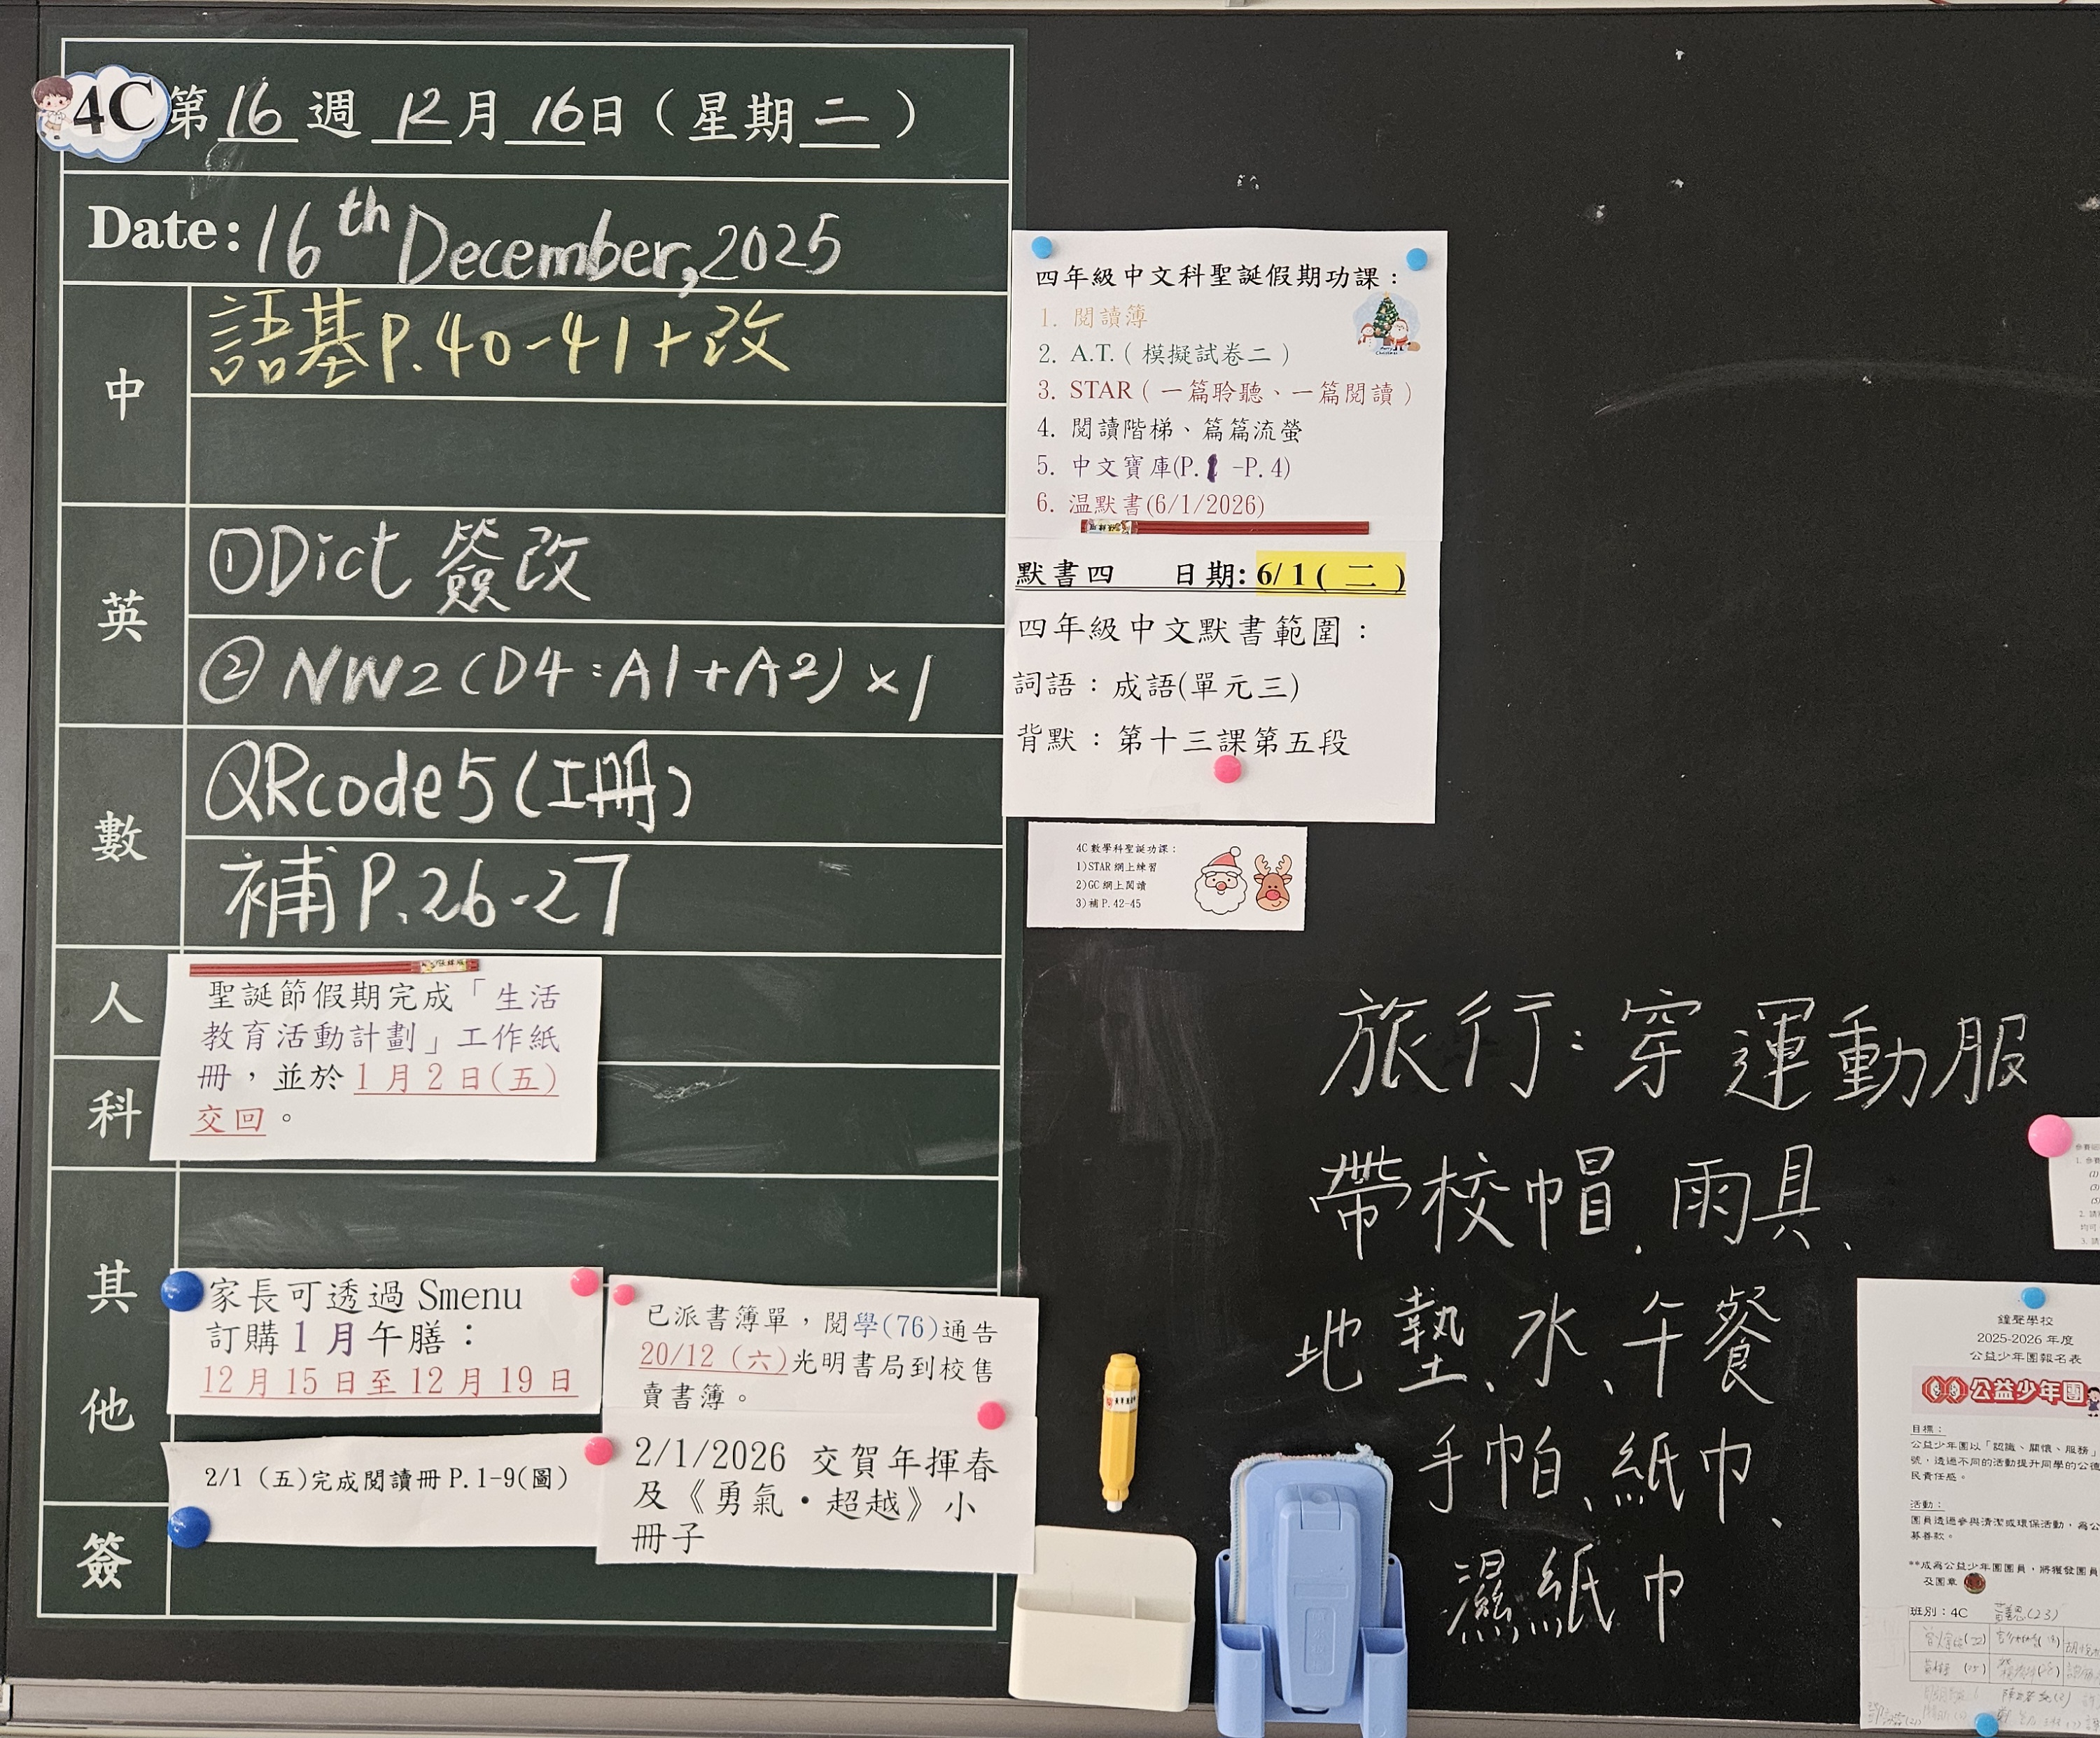 4C 第16週 12月16日（星期二）
Date: 16th December, 2025
中
語基P.40-41+改
英
①Dict 簽改
②NW2(D4:A1+A2)×1
數
QRcode5(工冊)
補P.26-27
人
科
聖誕節假期完成「生活
教育活動計劃」工作紙
冊，並於1月2日(五)
交回。
其
他
家長可透過 Smenu
訂購1月午膳：
12月15日至12月19日
2/1（五）完成閱讀冊P.1-9(圖)
已派書簿單，閱學(76)通告
20/12（六）光明書局到校售
賣書簿。
2/1/2026 交賀年揮春
及《勇氣・超越》小
冊子
簽
四年級中文科聖誕假期功課：
1. 閱讀簿
2. A.T.（模擬試卷二）
3. STAR（一篇聆聽、一篇閱讀）
4. 閱讀階梯、篇篇流螢
5. 中文寶庫(P.1 -P.4)
6. 温默書(6/1/2026)
默書四 日期: 6/1(二)
四年級中文默書範圍：
詞語：成語(單元三)
背默：第十三課第五段
4C數學科聖誕功課：
1)STAR網上練習
2)GC網上閱讀
3)補P.42-45
旅行：穿運動服
帶校帽、雨具、
地墊、水、午餐
手帕、紙巾、
濕紙巾
鐘聲學校
2025-2026年度
公益少年團報名表
公益少年團
目標：
公益少年團以「認識、關懷、服務」
號，透過不同的活動提升同學的公德
民責任感。
活動：
團員透過參與清潔或環保活動，為公
募善款。
**成為公益少年團團員，將獲發團員
及團章
班別：4C